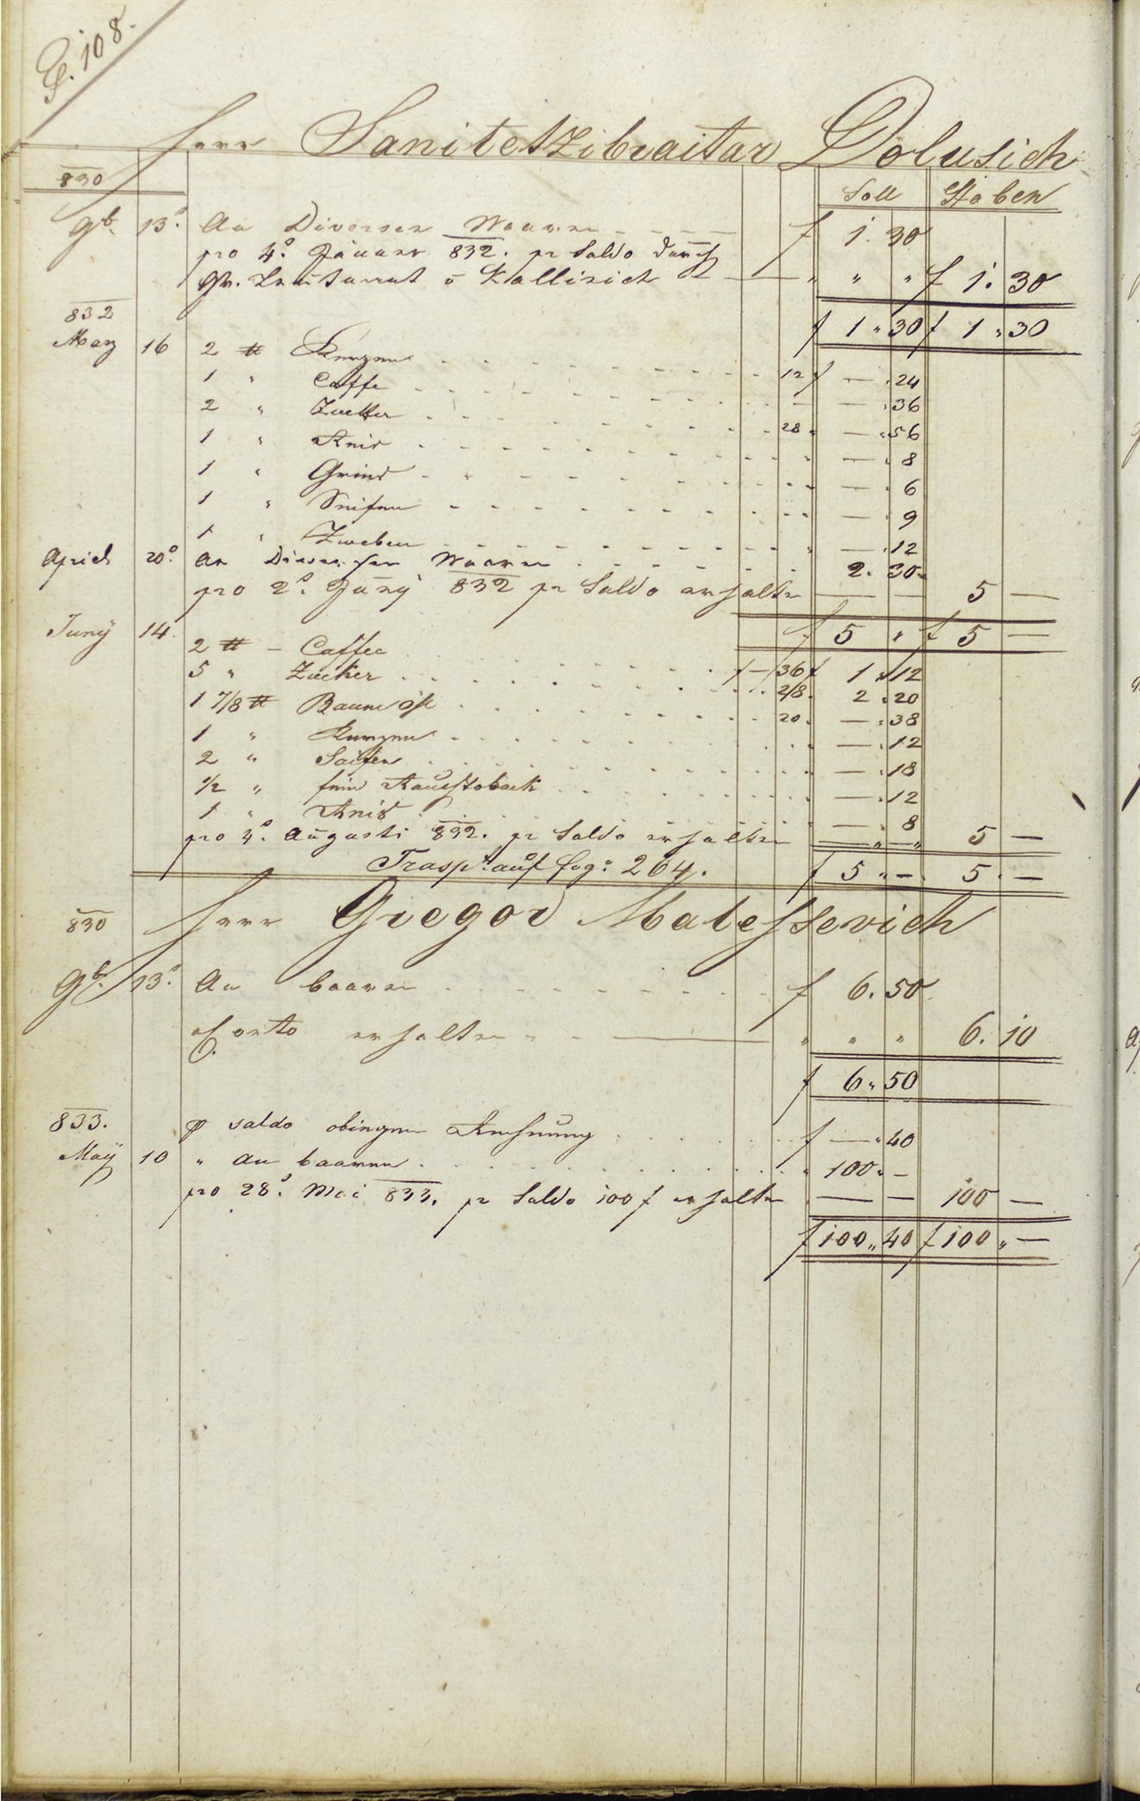 108.
Herr Sanitetzibraitar Dolusich
830
Soll Haben
9b. 13. An Diversen Waaren f 1. 30
pro 4. Januar 832. pr Saldo durch
Hr. Leutenant v Kallisich " " " f 1. 30
f 1 " 30 f 1 " 30
832
Marz 16 2 ℔ Kerzen 12 f — " 24
1 " Caffe — — " 36
2 " Zucker 28 " — " 56
1 " Anis — " 8
1 " Gries — " 6
1 " Seifen — " 9
1 " Zweben — " 12
April 20. An Diversen Waaren 2. 30
pro 2. Juny 832 pr Saldo erhalten — — 5 —
f 5 " f 5 —
Juny 14. 2 ℔ — Caffee f — 36 f 1 " 12
5 " Zucker 28. 2 " 20
1 7/8 ℔ Baumöhl 20. — " 38
1 " Kerzen — " 12
2 " Saifen — " 18
1/2 " fein Rauchtoback — " 12
1 " Anis — " 8
pro 4. Augusti 832. pr Saldo erhalten — " — " 5 —
Trasp.t auf fog: 264. f 5 " — 5 " —
830 Herr Gregor Matessevich
9b. 13. An baaren f 6. 50
Conto erhalten " " " 6. 10
f 6 " 50
833. saldo obingen Rechnung f — " 40
May 10 " An baaren " 100 " —
pro 28. Mai 833. pr Saldo 100 f erhalten — — 100 —
f 100 " 40 f 100 " —